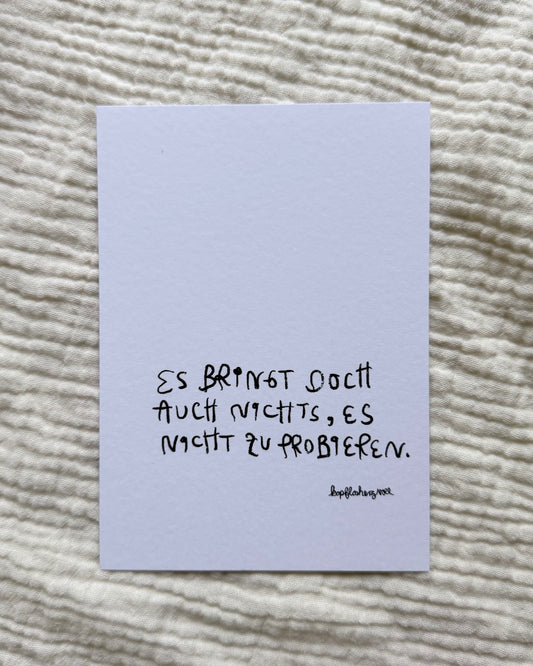 ES BRINGT DOCH
AUCH NICHTS, ES
NICHT ZU PROBIEREN.
kopflosherzvoll